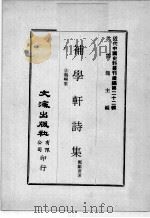 近代中國史料叢刊續編第二十二輯
沈雲龍主編
補學軒詩集
鄭獻甫著
文海出版社有限公司印行